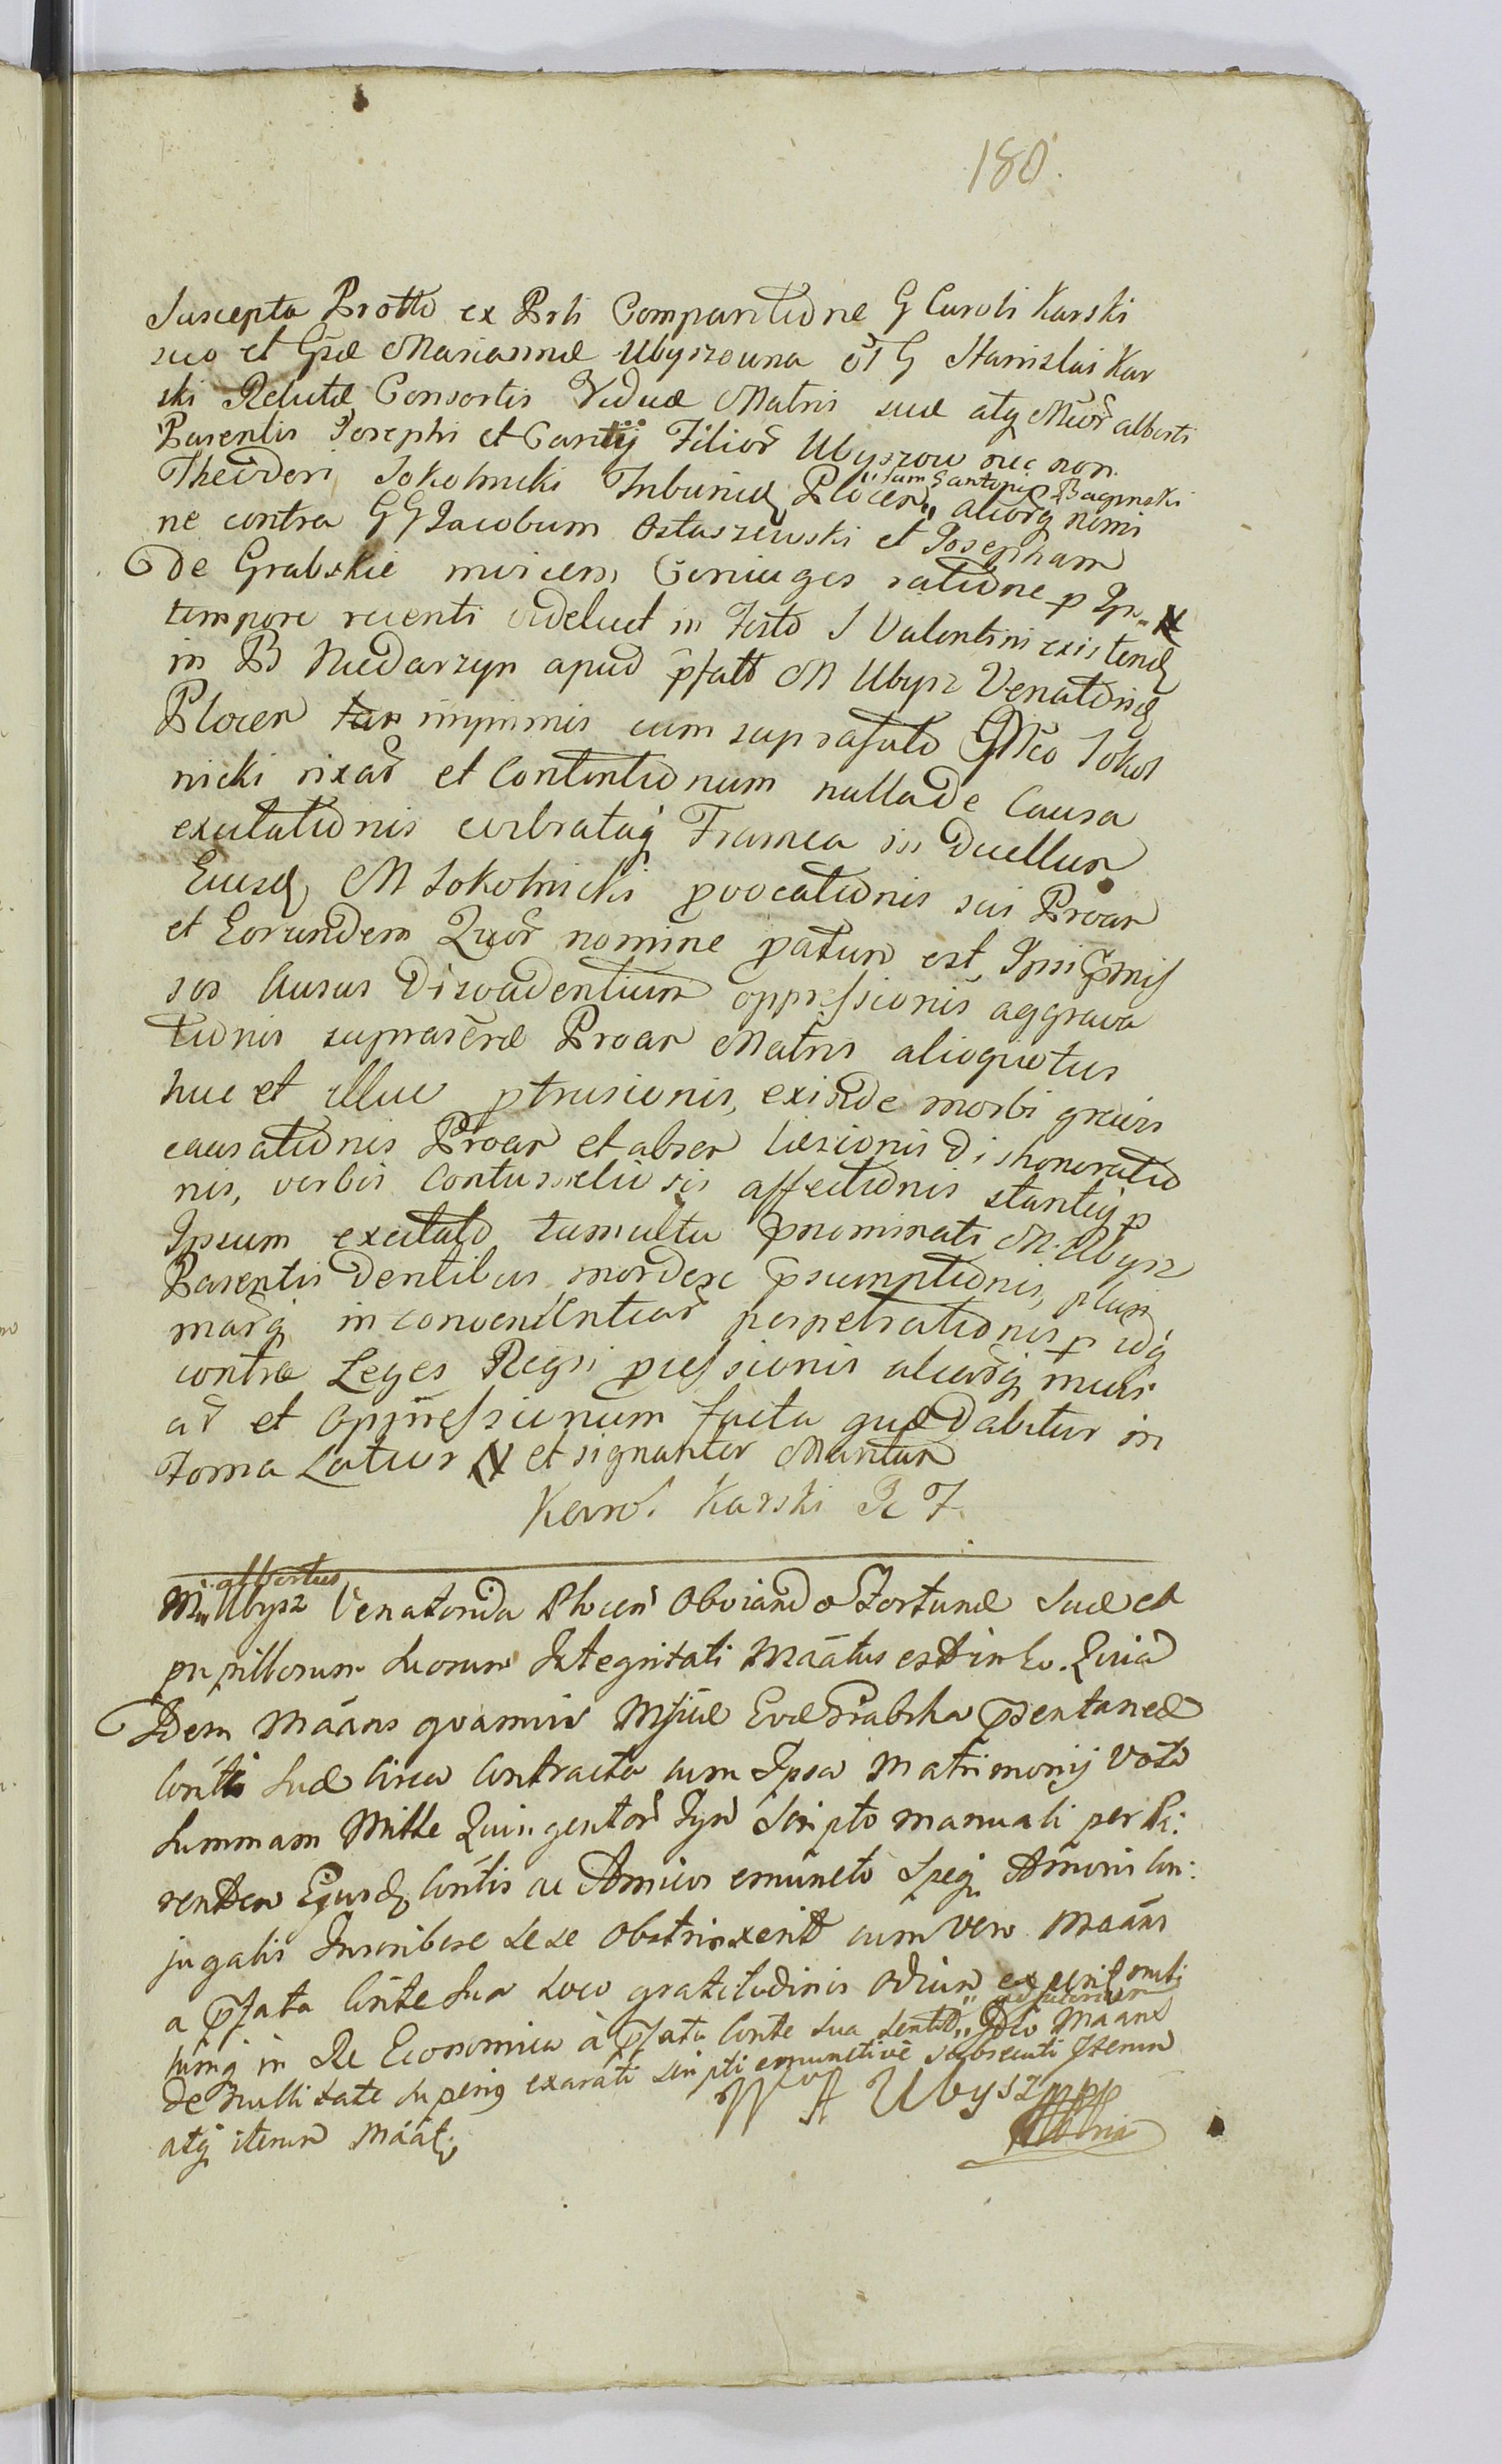 180.
Suscepta Protto ex Prti Comparitione G Caroli Karski
suo et Gsae Mariannae Ubyszowna ol G Stanislai Kar
ski Relictae Consortis Viduae Matris suae atq Mcor alberti
Parentis Josephi et Cantij Filior Ubyszow nec non
Theodori Sokolnicki Tribunid Plocen "tam G antonij Bagynski" aliorq nomi
ne contra GG Jacobum Ostaszewski et Josepham
De Grabskie miricem Coniuges ratione p Ips "N
tempore recenti videlicet in Festo S Valentini existend
in B Niedarzyn apud pfatt M Ubysz Venatorid
Plocen tan imprimis cum suprafato GMco Sokol
nicki rixar et Contentionum nulla de Causa
excitationis evibrataq Framea in Duellum
Eiusd M Sokolnicki pvocationis sui Proan
et Eorundem Quor nomine patum est, Ipsi pmis
sos Ausus Disvadentium oppressionis aggrava
tionis suprascrae Proan Matris alioquotus
huc et illuc ptrusionis, exinde morbi gravis
causationis Proan et absen laesionis Dishonoratio
nis, verbis Contumeliosis affectionis stantiq p
Ipsum excitato tumultu pnominati M. Ubysz
Parentis Dentibus mordere psumptionis, pluri
marq inconvenientiar perpetrationis p idq
contra Leges Regni pgressionis aliarq iniuri
ar et oppressionum facta quae Dabitur in
Forma Latior N et signanter Mantum
Karol Karski R T
M "albertus" Ubysz Venatorida Plocen Obviando Fortunae Suae et
pupillorum Suorum Integritati Maatus est in Eo. Quia
Idem Maans quamvis Msficae Evae Grabska psentaneae
Contti Suae Circa Contracta cum Ipsa Matrimonij Vota
Summam Mille Quingentor Fpn Scripto manuali per Pa:
rentem Ejusd Contis ac Amicos emuncto Speq Amoris Con:
jugalis Inscribere sese Obstrinxerit cum vero Maans
a pfata Conte Sua Loco gratitudinis Odium
in Re Economica à pfata Conte Sua sentit "
De nullitate Superius exarati Scripti emunctive subsecuti Iterum
atq iterum Maat
W A Ubysz mpp